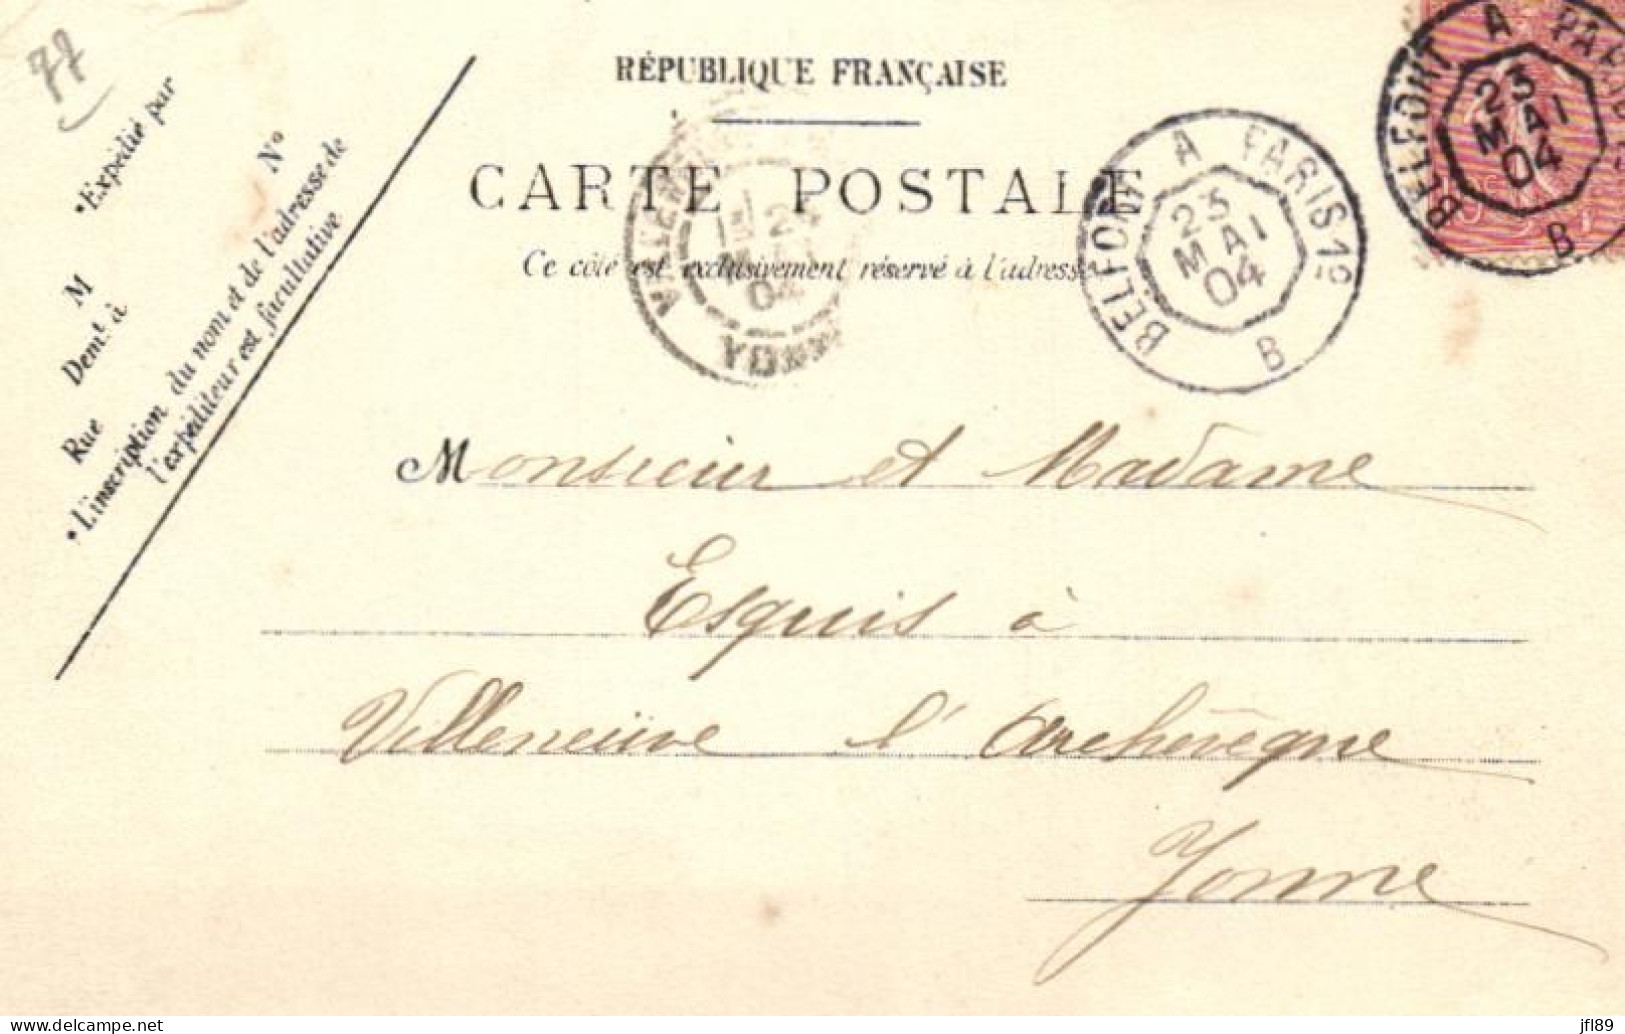 77
RÉPUBLIQUE FRANÇAISE
CARTE POSTALE
Ce côté est exclusivement réservé à l'adresse
• Expédié par
M
Demt à
Rue
N°
• L'inscription du nom et de l'adresse de
l'expéditeur est facultative
BELFORT A PARIS
23
MAI
04
B
BELFORT A PARIS 1°
23
MAI
04
B
24
04
YONNE
Monsieur et Madame
Esquis à
Villeneuve l'Archevêque
Yonne
jfl89